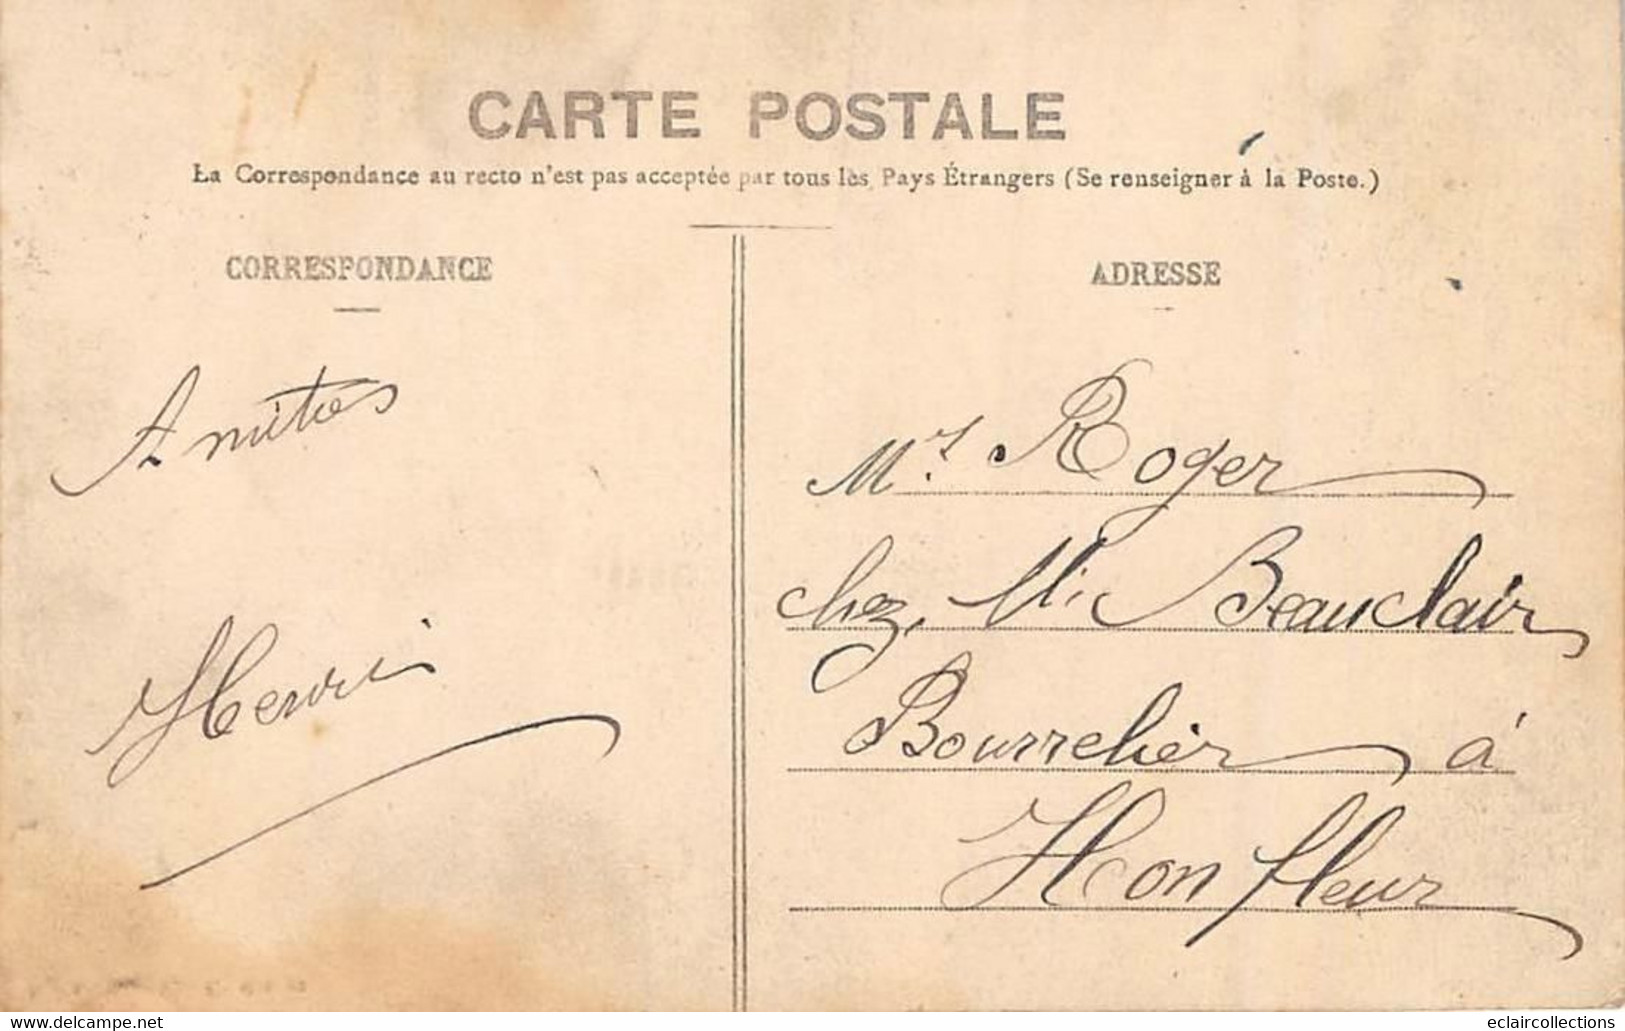 CARTE POSTALE
La Correspondance au recto n'est pas acceptée par tous les Pays Étrangers (Se renseigner à la Poste.)
CORRESPONDANCE
Amitiés
Henri
ADRESSE
Mr. Roger
chez, M. Beauclair
Bourrelier à
Honfleur
www.delcampe.net
eclaircollections